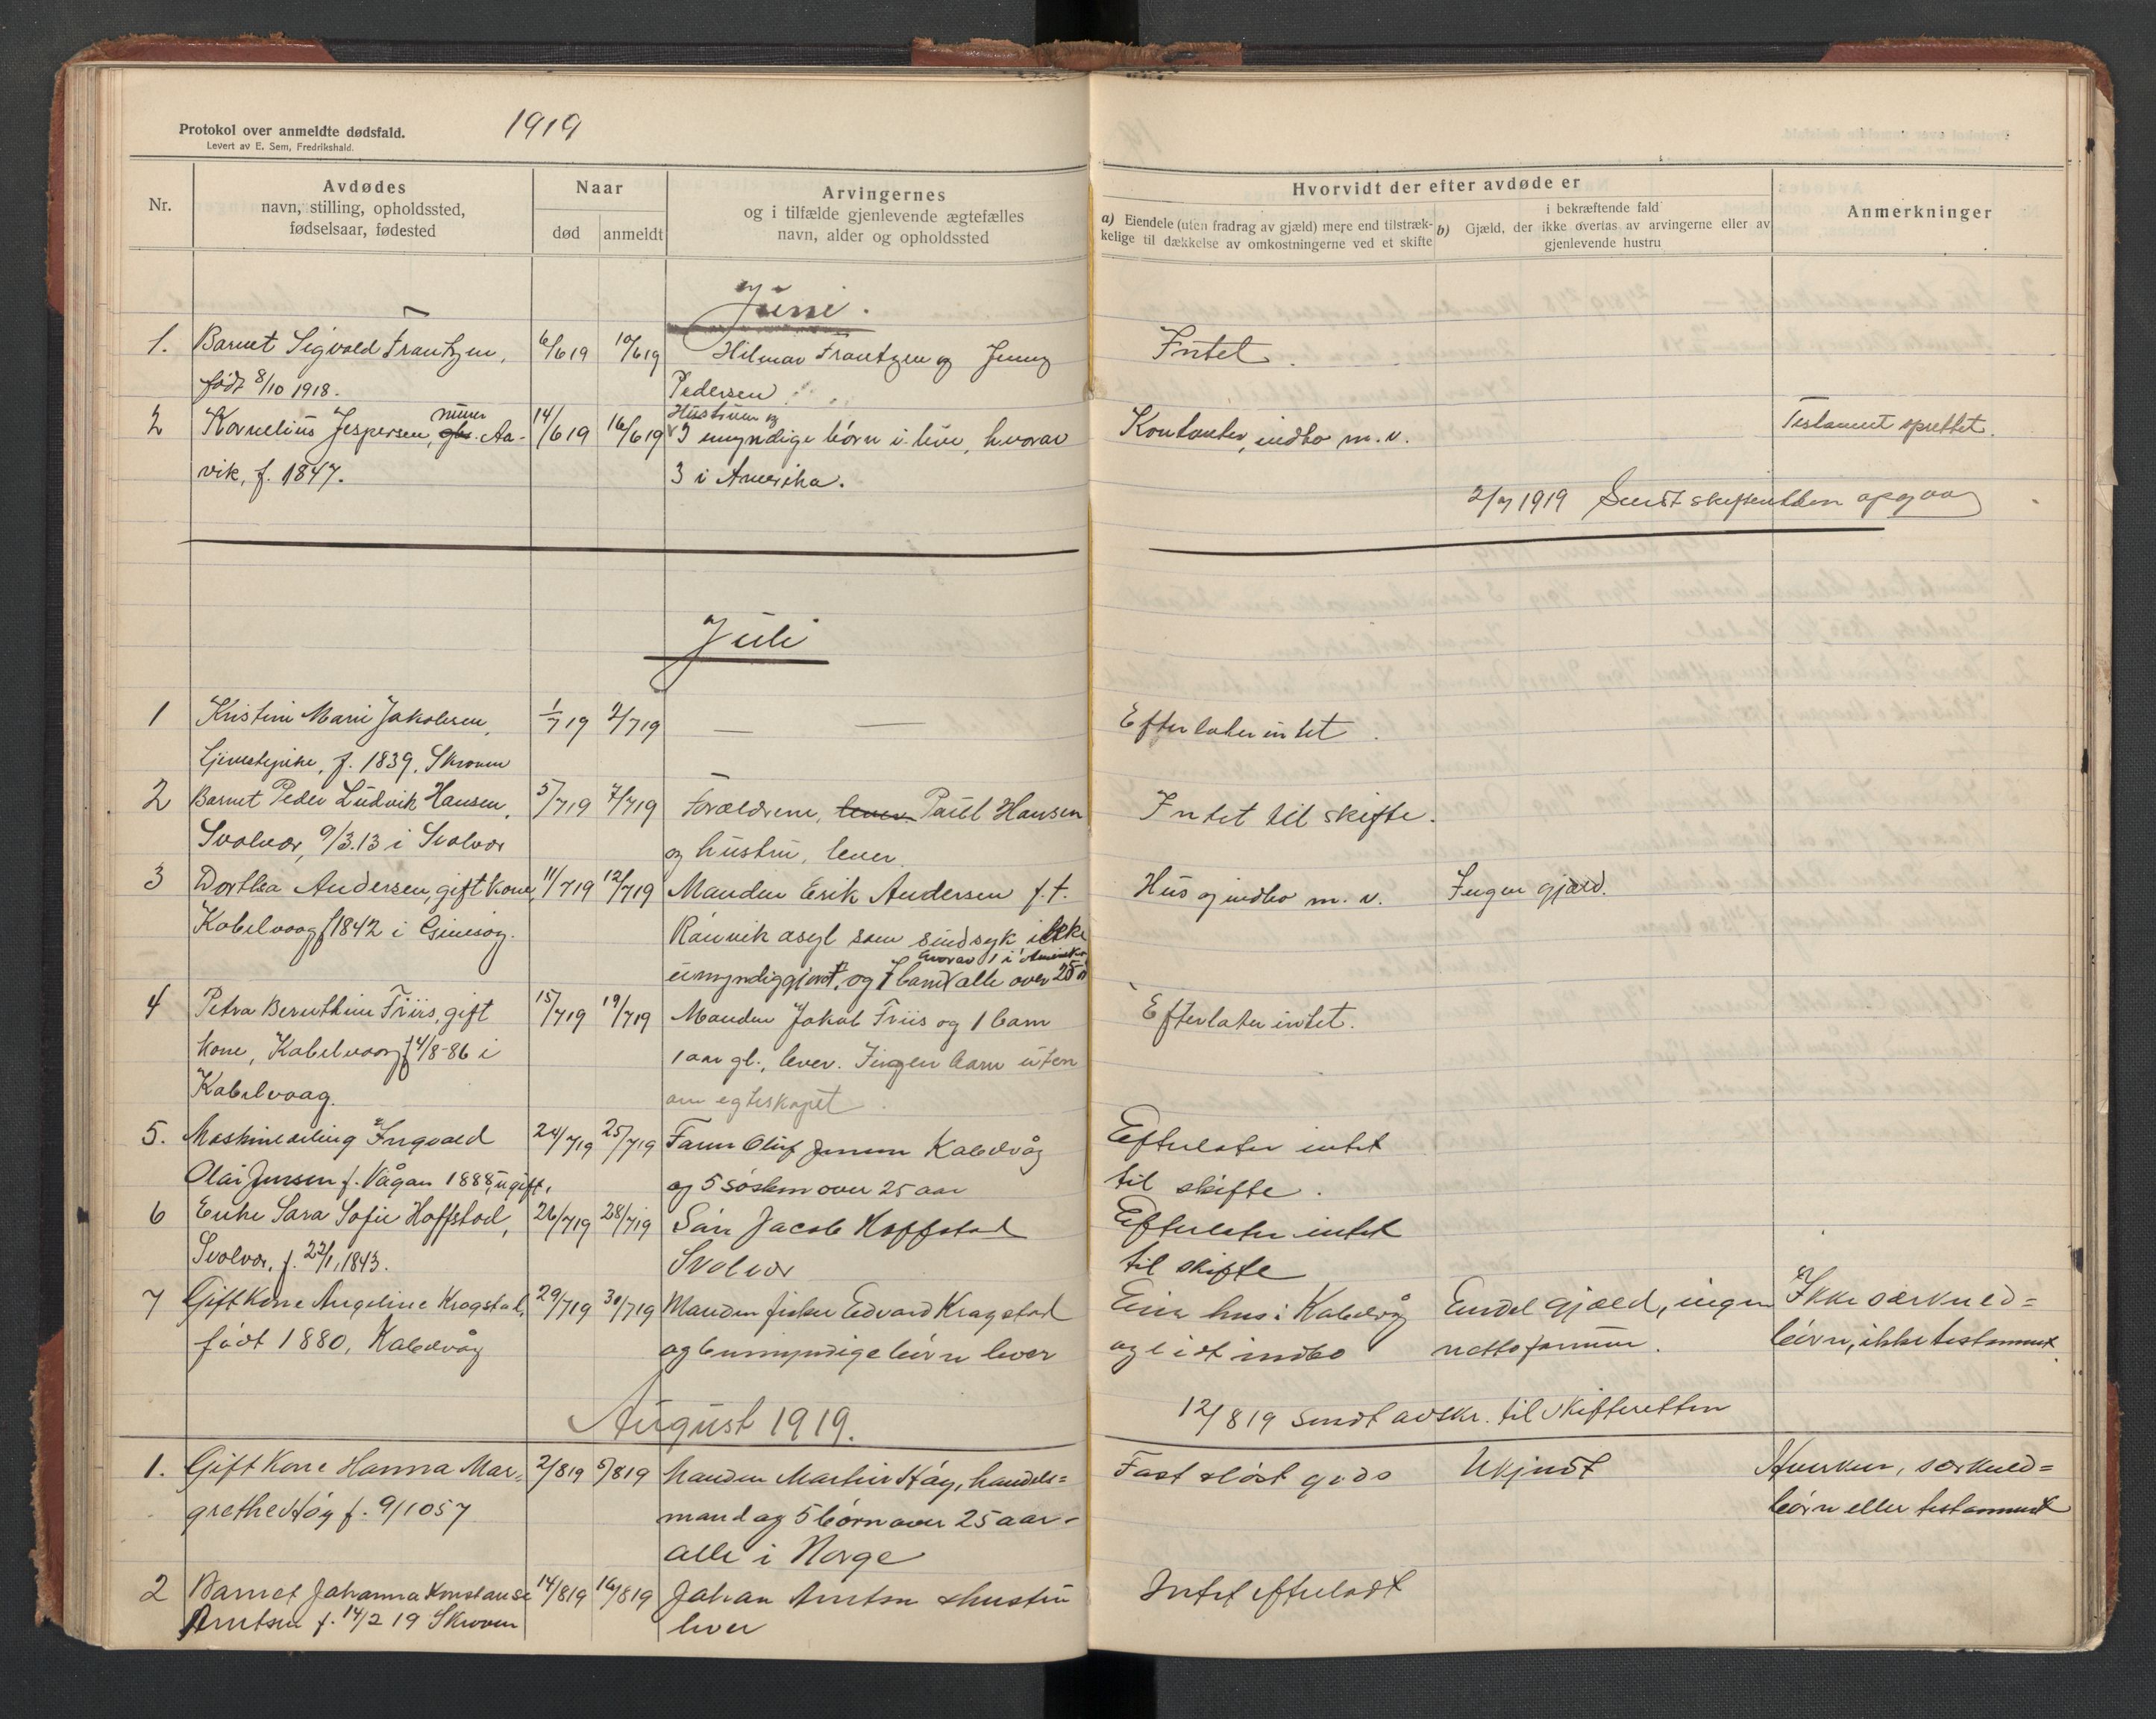 Protokol over anmeldte dødsfald.
Levert av E. Sem, Fredrikshald.
1919
Nr.
Avdødes
navn, stilling, opholdssted,
fødselsaar, fødested
Naar
død
anmeldt
Arvingernes
og i tilfælde gjenlevende ægtefælles
navn, alder og opholdssted
Hvorvidt der efter avdøde er
a) Eiendele (uten fradrag av gjæld) mere end tilstræk-
kelige til dækkelse av omkostningerne ved et skifte
i bekræftende fald
b) Gjæld, der ikke overtas av arvingerne eller av
gjenlevende hustru
Anmerkninger
Juni.
1. Barnet Sigvald Frantzen, 6/6 19 10/6 19 Hilmar Frantzen og Jenny Intet.
født 8/10 1918. Pedersen
murer Hustruen og
2 Kornelius Jespersen, Aa- 14/6 19 16/6 19 umyndige børn i live, hvorav Kontanter, indbo m.v. Testament oprettet.
vik, f. 1847. 3 i Amerika.
1919 Sendt skifteretten opgaa
Juli
1 Kristine Marie Jakobsen, 1/7 19 2/7 19 — — Efterlater intet.
f. 1839, Skroven
2 Barnet Peder Ludvik Hansen, 5/7 19 7/7 19 Forældrene, lever Paul Hansen Intet til skifte.
Svolvær, 9/3.13 i Svolvær og hustru, lever.
3 Dorthea Andersen, gift kone, 11/7 19 12/7 19 Manden Erik Andersen f.t. Hus og indbo m.v. Ingen gjæld.
Kabelvaag f 1842 i Gimsøy. Rønvik asyl som sindsyk ikke
hvorav 1 i Amerika
umyndiggjort, og barn alle over 25
4 Petra Bernthine Friis, gift 15/7 19 19/7 19 Manden Jakob Friis og 1 barn Efterlater intet.
kone, Kabelvaag f 4/8-86 i 1 aar gl., lever. Ingen barn uten
Kabelvaag. om egteskapet.
5. Ingvald 24/7 19 25/7 19 Faren Oluf Jensen Kabelvåg Efterlater intet
Olai Jensen f. Vågan 1888, ugift. og 5 søsken over 25 aar til skifte.
6 Enke Sara Sofie Hoffstad, 26/7 19 28/7 19 Søn Jacob Hoffstad Efterlater intet
Svolvær, f. 22/1, 1843. Svolvær til skifte
7 Gift kone Angeline Kragstad, 29/7 19 30/7 19 Manden fisker Edvard Kragstad Eier hus i Kabelvåg Endel gjæld, ingen Ikke særkuld=
født 1880, Kabelvåg og 6 umyndige børn lever og lidt indbo nettoformue. børn, ikke testament.
August 1919. 12/8 19 Sendt avskr. til skifteretten
1. Gift kone Hanna Mar- 2/8 19 5/8 19 Manden Martin Høy, handels= Fast & løst gods Ukjendt Hverken, særkuld=
grethe Høy f. 9/10 57 mand og 5 børn over 25 aar - børn eller testament
alle i Norge
2 Barnet Johanna Konstanse 14/8 19 16/8 19 Johan Arntsen & hustru Intet efterladt
Arntsen f. 14/2 19 Skroven lever